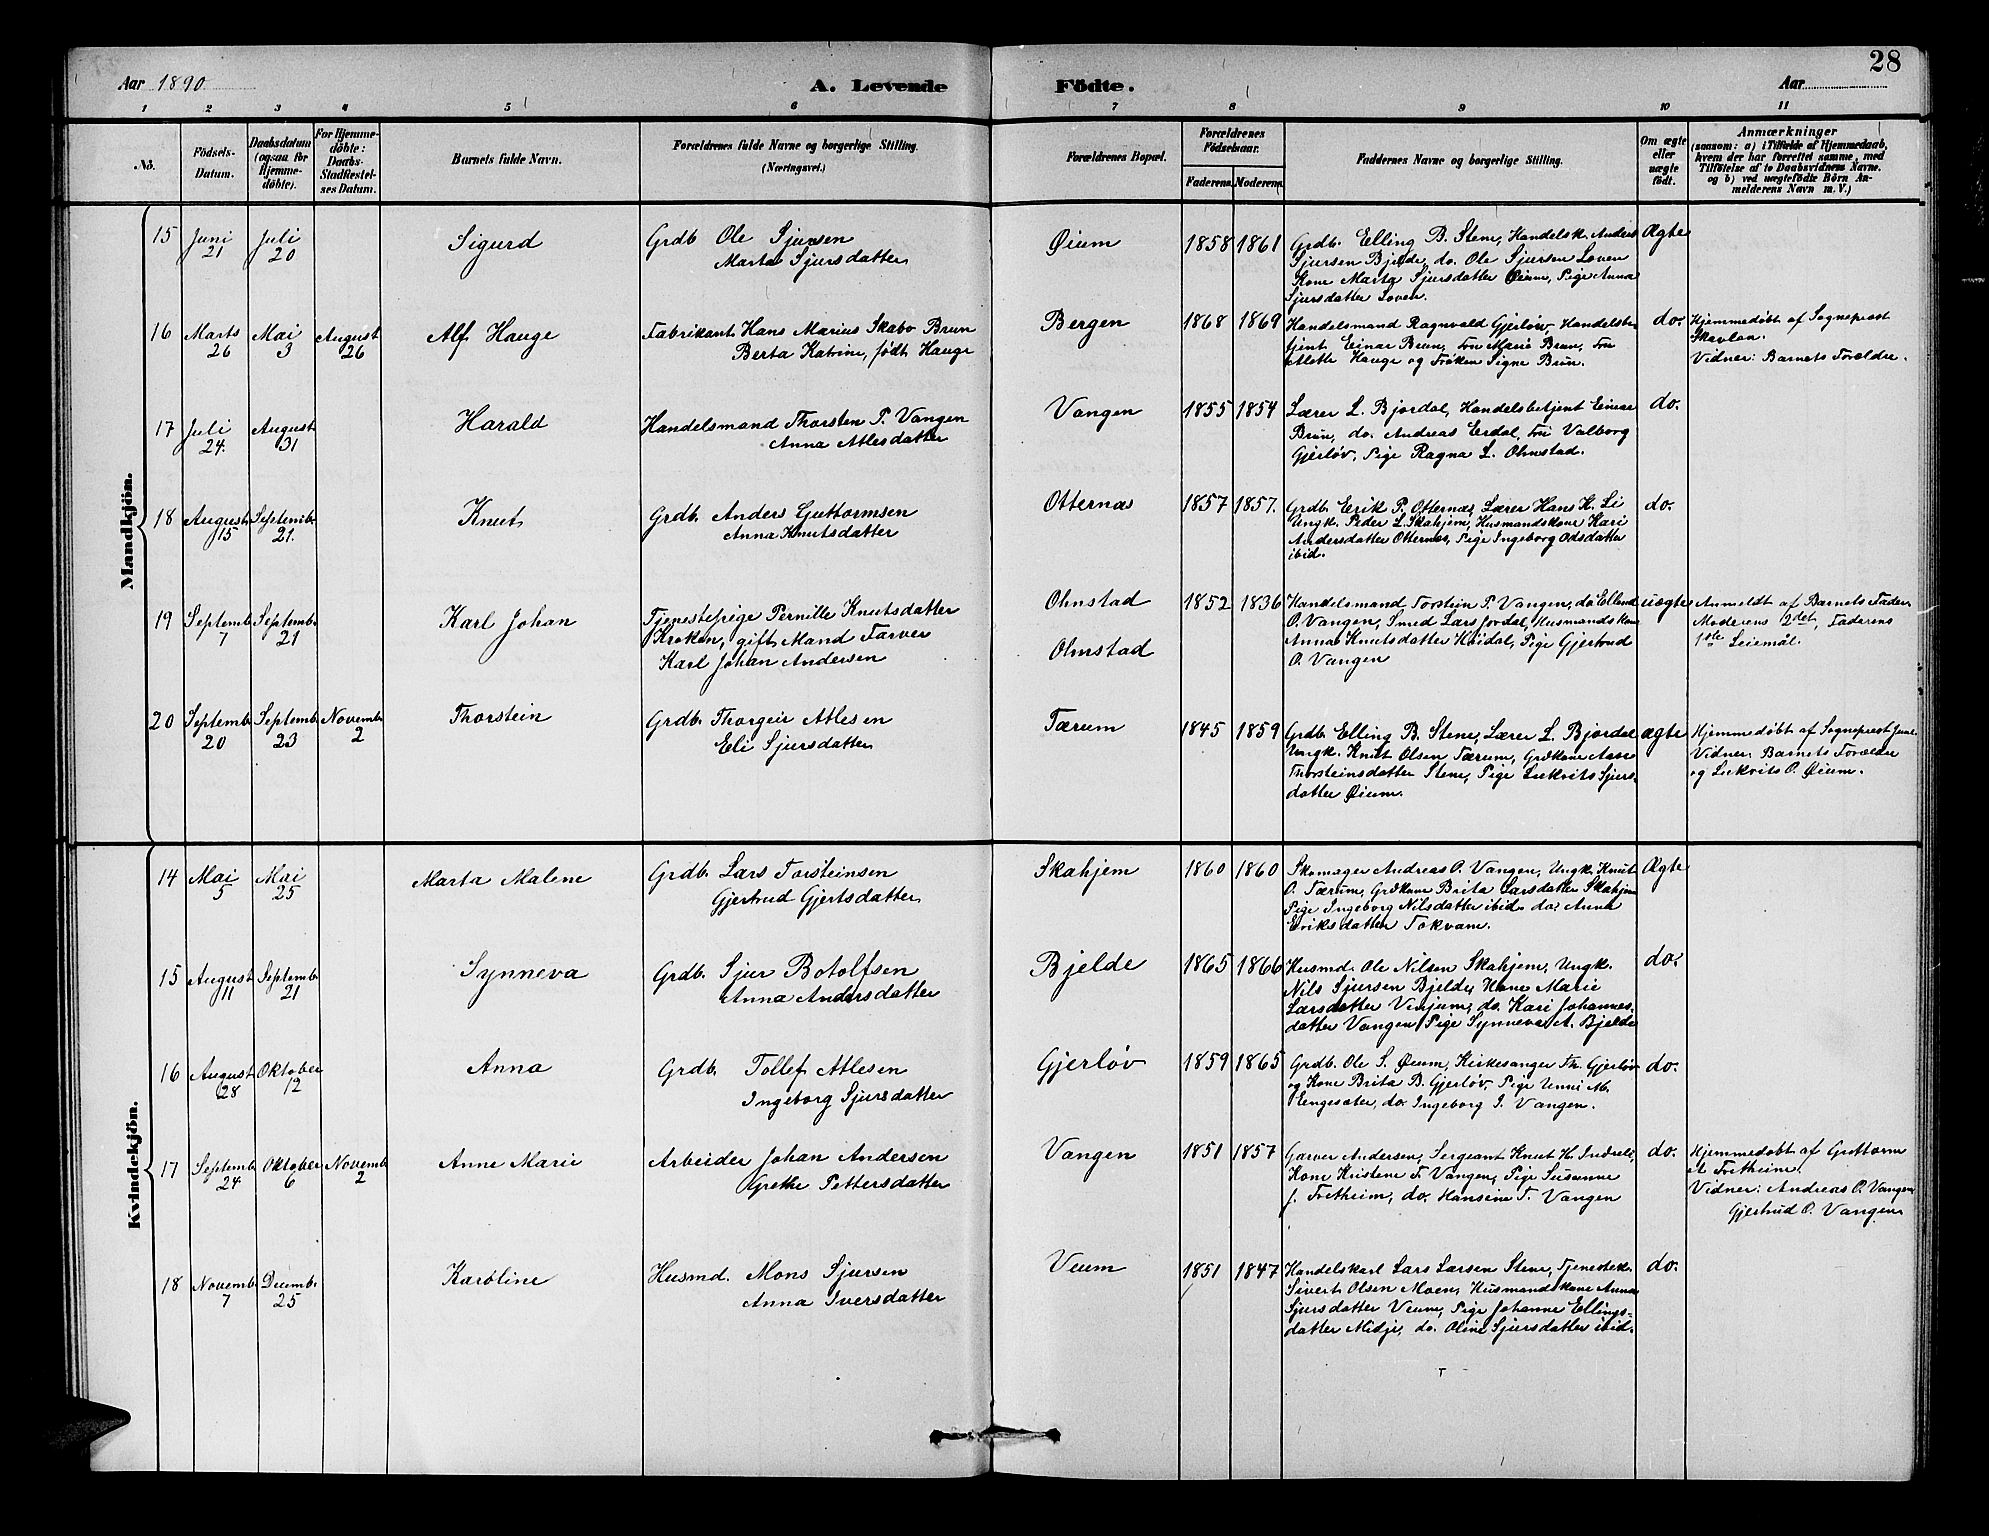 28
Aar 1890
A. Levende
Födte.
Aar
1 2 3 4 5 6 7 8 9 10 11
No.
Födsels-
Datum.
Daabsdatum
(ogsaa for
Hjemme-
döbte).
For Hjemme-
döbte:
Daabs-
Stadfæstel-
ses Datum.
Barnets fulde Navn.
Forældrenes fulde Navne og borgerlige Stilling.
(Næringsvei.)
Forældrenes Bopæl.
Forældrenes
Födselsaar.
Faderens. Moderens.
Faddernes Navne og borgerlige Stilling.
Om ægte
eller
uægte
födt.
Anmærkninger
(saasom: a) i Tilfælde af Hjemmedaab,
hvem der har forrettet samme, med
Tilföielse af to Daabsvidners Navne.
og b) ved uægtefödte Börn An-
melderens Navn m. V.)
Mandkjön.
15
Juni
21
Juli
20
Sigurd
Grdb. Ole Sjursen
Marta Sjursdatter
Øium
1858 1861
Grdb. Elling B. Stene, Handelsk. Anders
Sjursen Bjelde, do. Ole Sjursen Loven
Kone Marta Sjursdatter Øium, Pige Anna
Sjursdatter Loven.
Ægte
16
Marts
26
Mai
3
August
26
Alf Hauge
Fabrikant Hans Marius Skabo Brun
Berta Katrine, født Hauge
Bergen
1868 1869
Handelsmand Ragnvald Gjerløv, Handelsbe
tjent Einar Brun, Fru Marie Brun, Fru
Alotte Hauge og Frøken Signe Brun.
do.
Hjemmedøbt af Sogneprest
Skavlan.
Vidner: Barnets Forældre.
17
Juli
24.
August
31
Harald
Handelsmand Thorsten P. Vangen
Anna Atlesdatter
Vangen
1855 1854
Lærer L. Bjørdal, Handelsbetjent Einar
Brun, do. Andreas Eerdal, Fru Valborg
Gjerløv, Pige Ragna L. Ohnstad.
do.
18
August
15
Septembr
21.
Knut
Grdb. Anders Guttormsen
Anna Knutsdatter
Otternæs
1857 1857.
Grdb. Erik P. Otternæs, Lærer Hans K. Li
Ungk. Peder L. Skahjem, Husmandskone Kari
Andersdatter Otternes, Pige Ingeborg Odsdatter
ibid.
do.
19
Septemb.
7
Septemb.
21
Karl Johan
Tjenestepige Pernille Knutsdatter
Kroken, gift Mand Farver
Karl Johan Andersen
Ohnstad
Ohnstad
1852 1836
Handelsmand Torstein P. Vangen, do. Ellend
O. Vangen, Smed Lars Jordal, Husmandskone
Anna Knutsdatter Høidal, Pige Gjertrud
O. Vangen
uægte
Anmeldt af Barnets Fader.
Moderens 2det, Faderens
1ste Leiemål.
20
Septemb.
20
Septemb.
23
Novemb.
2
Thorstein
Grdb. Thorgeir Atlesen
Eli Sjursdatter
Tærum
1845 1859
Grdb. Elling B. Stene, Lærer L. Bjørdal
Ungk. Knut Olsen Tærum, Grdkone Aase
Thorsteinsdatter Stene, Pige Lukvits Sjurs-
datter Øium.
ægte
Hjemmedøbt af Sogneprest
Vidner: Barnets Forældre
og Lukvits O. Øium.
Kvindekjön.
14
Mai
5
Mai
25
Marta Malene
Grdb. Lars Torsteinsen
Gjertrud Gjertsdatter
Skahjem
1860 1860
Skomager Andreas O. Vangen, Ungk. Knut
O. Tærum, Grdkone Brita Larsdatter Skahjem
Pige Ingeborg Nilsdatter ibid. do. Anna
Eriksdatter Tokvam.
Ægte
15
August
11
Septemb.
21
Synneva
Grdb. Sjur Botolfsen
Anna Andersdatter
Bjelde
1865 1866
Husmd. Ole Nilsen Skahjem, Ungk.
Nils Sjursen Bjelde, Kone Marie
Larsdatter Vinjum, do. Kari Johannes-
datter Vangen Pige Synneva A. Bjelde
do.
16
August
28
Oktober
12
Anna
Grdb. Tollef Atlesen
Ingeborg Sjursdatter
Gjerløv
1859 1865
Grdb. Ole S. Øium, Kirkesanger Th. Gjerløv
og Kone Brita B. Gjerløv, Pige Unni M.
Eengesæter, do. Ingeborg I. Vangen.
do.
17
Septemb.
24.
Oktober
6
Novemb.
2
Anne Marie
Arbeider Johan Andersen
Grethe Pettersdatter
Vangen
1851 1857
Garver Andersen, Sergeant Knut H. Indreli,
Kone Kristene T. Vangen, Pige Susanne
J. Fretheim, do. Hansine T. Vangen
do.
Hjemmedøbt af Guttorm
A. Fretheim.
Vidner: Andreas O. Vangen
Gjertrud O. Vangen.
18
Novemb.
7
Decemb.
25
Karoline
Husmd. Mons Sjursen
Anna Iversdatter
Veum
1851 1847
Handelskarl Lars Larsen Stene, Tjenestek.
Sivert Olsen Moen, Husmandskone Anna
Sjursdatter Veum, Pige Johanne Ellings-
datter Midje, do. Oline Sjursdatter ibid.
do.